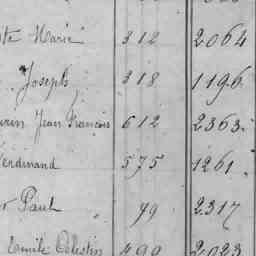 Marie 312 2064
Joseph 318 1196
Jean François 612 2363
Ferdinand 575 1261
Paul 79 2317
Emile Célestin 499 2023